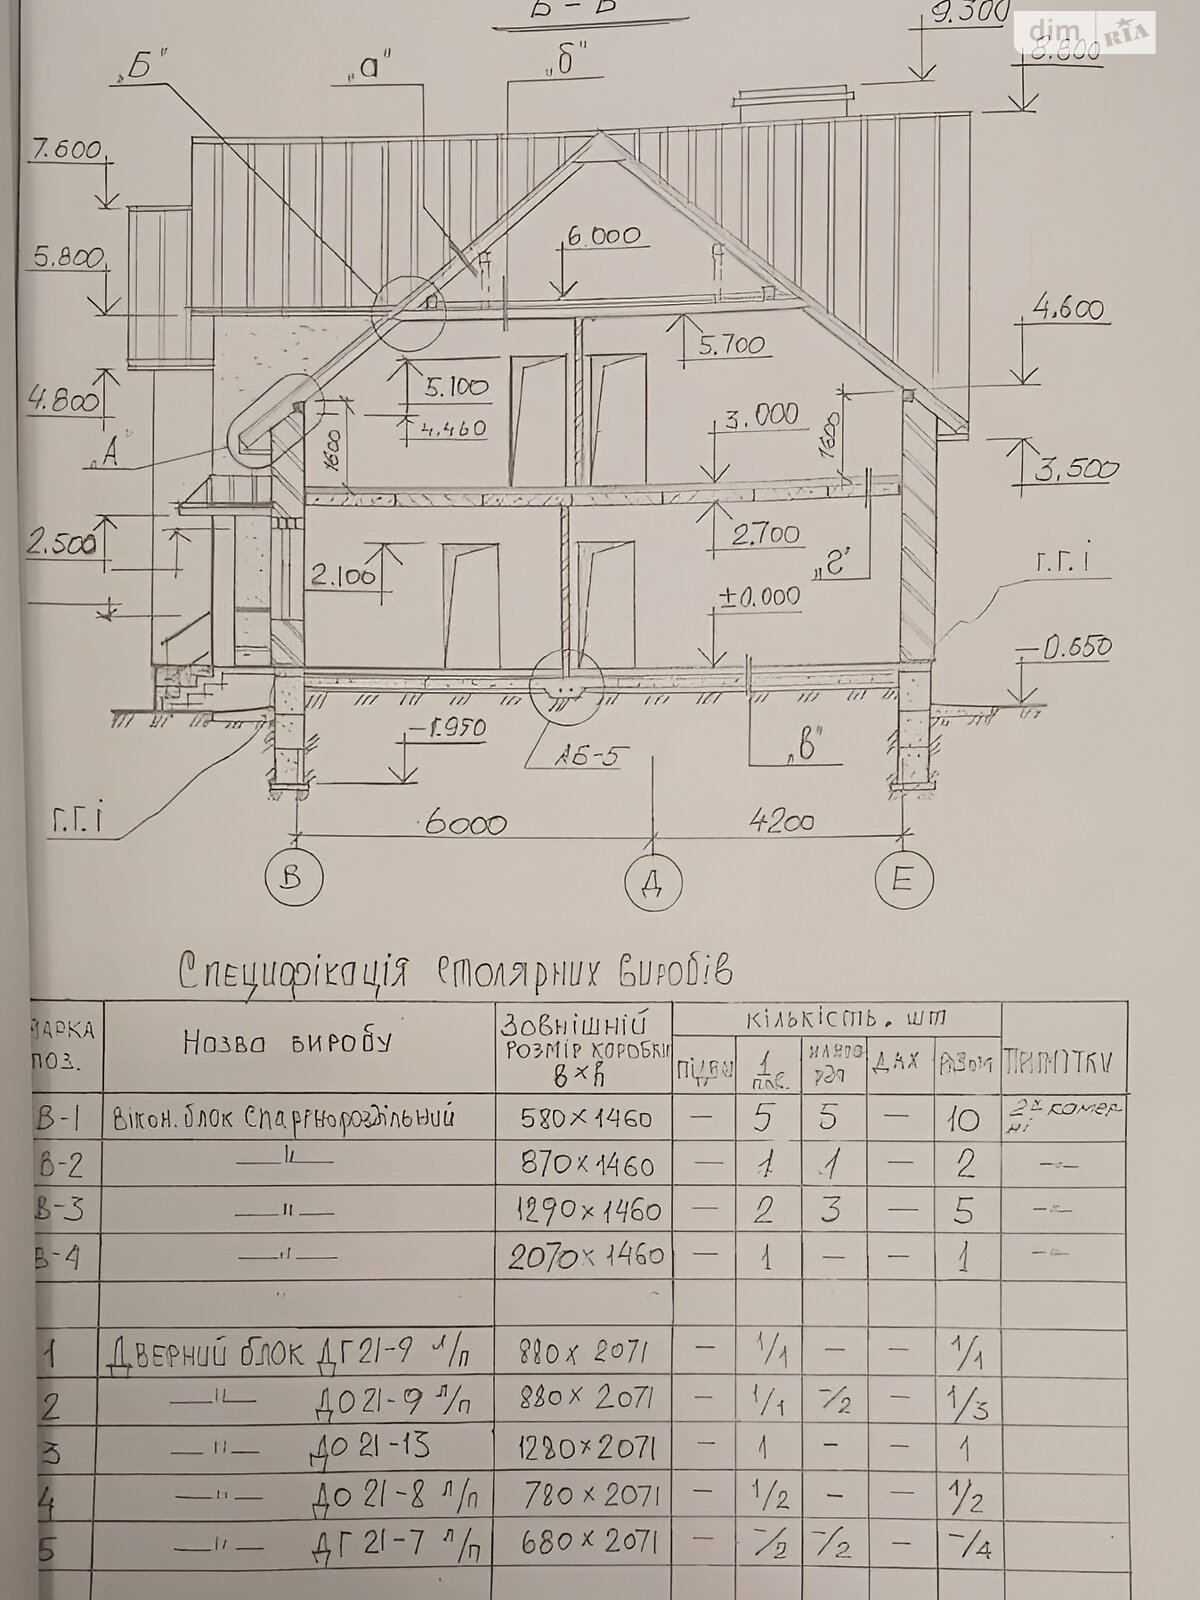 Б - Б
9.300
dim RIA
8.800
„Б"
„а"
„б"
7.600
5.800
6.000
4.600
5.700
4.800
5.100
4.460
3.000
1600
1600
„А"
3,500
2.500
2.100
2.700
„г"
г.г.і
±0.000
-0.650
-1.950
АБ-5
„в"
г.г.і
6000
4200
В
Д
Е
Специфікація столярних виробів
МАРКА ПОЗ.
Назва виробу
ЗОВНІШНІЙ РОЗМІР КОРОБКИ в×h
КІЛЬКІСТЬ, шт
ПІДВАЛ
1 пов.
ДАХ
РАЗОМ
ПРИМІТКИ
В-1 Вікон. блок Спарэнороздільний 580×1460 — 5 5 — 10 2х комер-
ні
В-2 —"— 870×1460 — 1 1 — 2 —"—
В-3 —"— 1290×1460 — 2 3 — 5 —"—
В-4 —"— 2070×1460 — 1 — — 1 —"—
1 Дверний блок ДГ21-9 л/п 880×2071 — 1/1 — — 1/1
2 —"— ДО21-9 л/п 880×2071 — 1/1 -/2 — 1/3
3 —"— ДО 21-13 1280×2071 — 1 — — 1
4 —"— ДО 21-8 л/п 780×2071 — 1/2 — — 1/2
5 —"— ДГ 21-7 л/п 680×2071 — -/2 -/2 — -/4